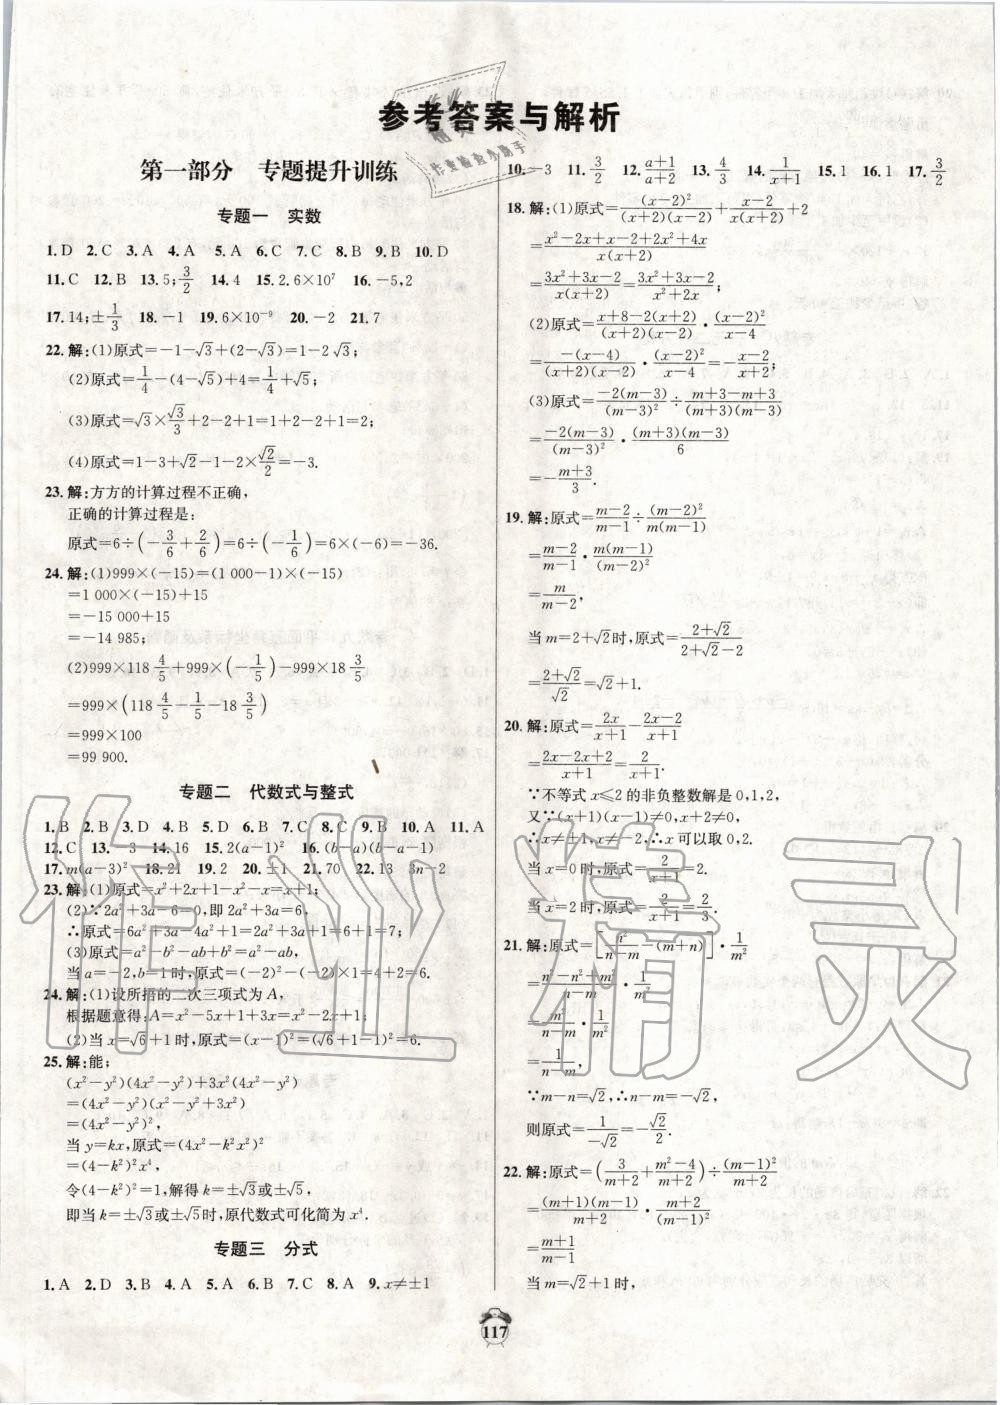 参考答案与解析
第一部分 专题提升训练
专题一 实数
1.D 2.C 3.A 4.A 5.A 6.C 7.C 8.B 9.B 10.D
11.C 12.B 13.5;3/2 14.4 15.2.6×10⁷ 16.-5,2
17.14;±1/3 18.-1 19.6×10⁻⁹ 20.-2 21.7
22.解:(1)原式=-1-√3+(2-√3)=1-2√3;
(2)原式=1/4-(4-√5)+4=1/4+√5;
(3)原式=√3×√3/3+2-2+1=1+2-2+1=2;
(4)原式=1-3+√2-1-2×√2/2=-3.
23.解:方方的计算过程不正确,
正确的计算过程是:
原式=6÷(-3/6+2/6)=6÷(-1/6)=6×(-6)=-36.
24.解:(1)999×(-15)=(1 000-1)×(-15)
=1 000×(-15)+15
=-15 000+15
=-14 985;
(2)999×118 4/5+999×(-1/5)-999×18 3/5
=999×(118 4/5-1/5-18 3/5)
=999×100
=99 900.
专题二 代数式与整式
1.B 2.B 3.B 4.B 5.D 6.B 7.C 8.C 9.B 10.A 11.A
12.C 13.-3 14.16 15.2(a-1)² 16.(b-a)(b-a-1)
17.m(a-3)² 18.21 19.2 20.±1 21.70 22.13 3n-2
23.解:(1)原式=x²+2x+1-x²-x=x+1;
(2)∵2a²+3a-6=0,即2a²+3a=6,
∴原式=6a²+3a-4a²+1=2a²+3a+1=6+1=7;
(3)原式=a²-b²-ab+b²=a²-ab,
当a=-2,b=1时,原式=(-2)²-(-2)×1=4+2=6.
24.解:(1)设所捂的二次三项式为A,
根据题意得:A=x²-5x+1+3x=x²-2x+1;
(2)当x=√6+1时,原式=(x-1)²=(√6+1-1)²=6.
25.解:能;
(x²-y²)(4x²-y²)+3x²(4x²-y²)
=(4x²-y²)(x²-y²+3x²)
=(4x²-y²)²,
当y=kx,原式=(4x²-k²x²)²
=(4-k²)²x⁴,
令(4-k²)²=1,解得k=±√3或±√5,
即当k=±√3或±√5时,原代数式可化简为x⁴.
专题三 分式
1.A 2.D 3.B 4.A 5.A 6.B 7.C 8.A 9.x≠±1
10.-3 11.3/2 12.(a+1)/(a+2) 13.4/3 14.1/(x+1) 15.1 16.1 17.3/2
18.解:(1)原式=(x-2)²/((x+2)(x-2))+(x-2)/(x(x+2))+2
=(x²-2x+x-2+2x²+4x)/(x(x+2))
=(3x²+3x-2)/(x(x+2))=(3x²+3x-2)/(x²+2x);
(2)原式=(x+8-2(x+2))/((x+2)(x-2))·(x-2)²/(x-4)
=-(x-4)/((x+2)(x-2))·(x-2)²/(x-4)=-(x-2)/(x+2);
(3)原式=-2(m-3)/(m-3)²÷(m+3-m+3)/((m+3)(m-3))
=-2(m-3)/(m-3)²·(m+3)(m-3)/6
=-(m+3)/3.
19.解:原式=(m-2)/(m-1)÷(m-2)²/(m(m-1))
=(m-2)/(m-1)·m(m-1)/(m-2)²
=m/(m-2),
当m=2+√2时,原式=(2+√2)/(2+√2-2)
=(2+√2)/√2=√2+1.
20.解:原式=2x/(x+1)-(2x-2)/(x+1)
=(2x-2x+2)/(x+1)=2/(x+1),
∵不等式x≤2的非负整数解是0,1,2,
又∵(x+1)(x-1)≠0,x+2≠0,
∴x≠±1,x≠-2,∴x可以取0,2.
当x=0时,原式=2/(x+1)=2.
当x=2时,原式=2/(x+1)=2/3.
21.解:原式=[n²/(n-m)-(m+n)]·1/m²
=(n²-n²+m²)/(n-m)·1/m²
=m²/(n-m)·1/m²
=1/(n-m),
∵m-n=√2,∴n-m=-√2,
则原式=1/(-√2)=-√2/2.
22.解:原式=(3/(m+2)+(m²-4)/(m+2))÷(m-1)²/(m+2)
=(m+1)(m-1)/(m+2)·(m+2)/(m-1)²
=(m+1)/(m-1)
当m=√2+1时,
117
作业精灵